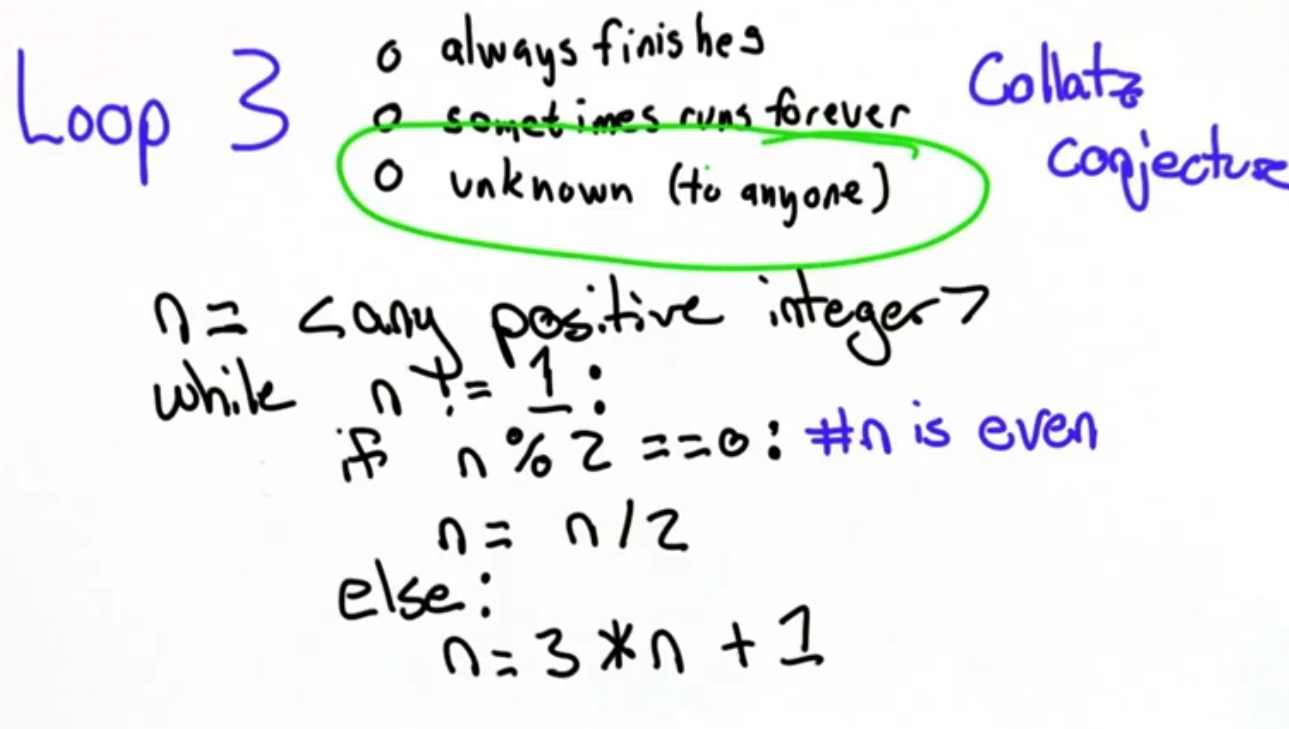 Loop 3
o always finishes
o sometimes runs forever
o unknown (to anyone)
Collatz
conjecture
n = <any positive integer>
while n != 1:
if n % 2 == 0: #n is even
n = n/2
else:
n = 3 * n + 1